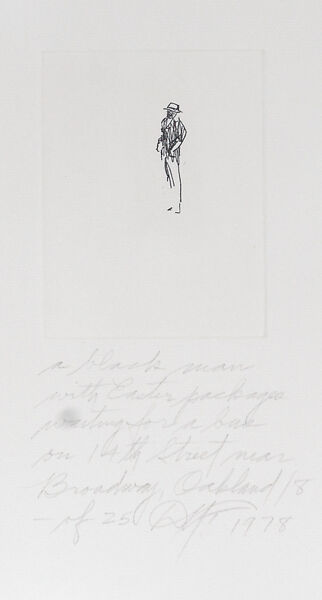 a black man
with Easter packages
waiting for a bus
on 14th Street near
Broadway, Oakland / 8
- of 25 1978